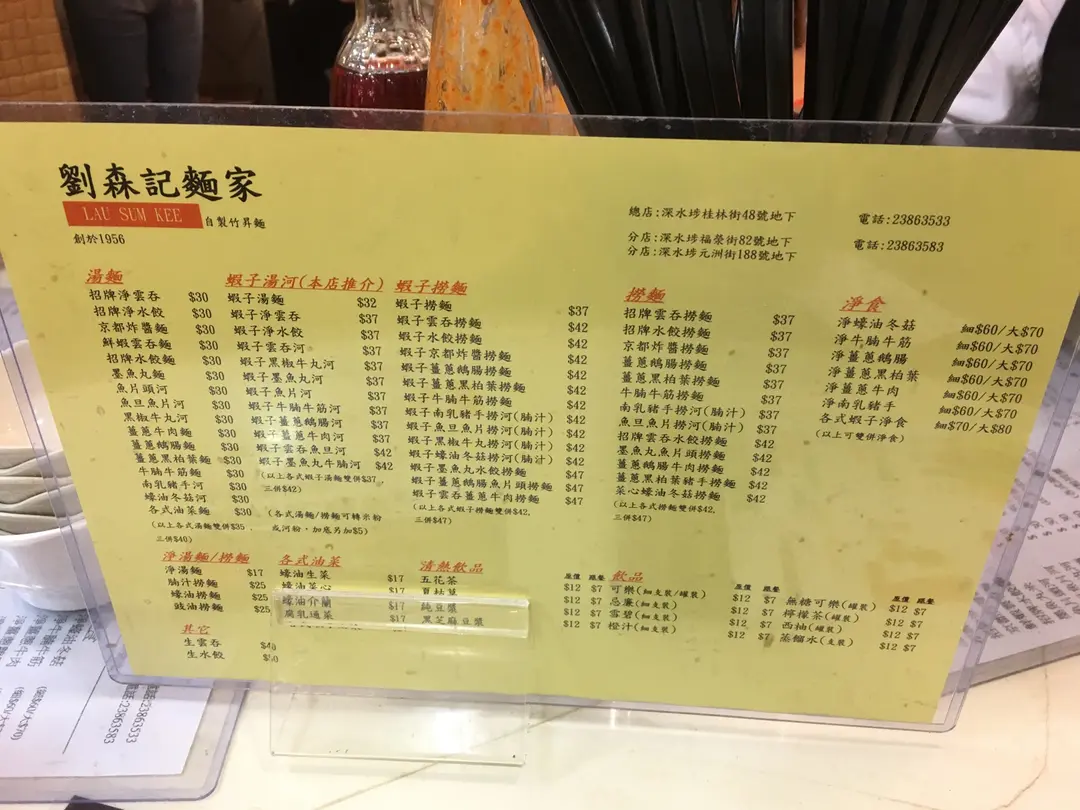 劉森記麵家
LAU SUM KEE 自製竹昇麵
創於1956
總店:深水埗桂林街48號地下 電話:23863533
分店:深水埗福榮街82號地下 電話:23863583
分店:深水埗元洲街188號地下
湯麵
招牌淨雲吞 $30
招牌淨水餃 $30
京都炸醬麵 $30
鮮蝦雲吞麵 $30
招牌水餃麵 $30
墨魚丸麵 $30
魚片頭河 $30
魚旦魚片河 $30
黑椒牛丸河 $30
薑蔥牛肉麵 $30
薑蔥鵝腸麵 $30
薑蔥黑柏葉麵 $30
牛腩牛筋麵 $30
南乳豬手河 $30
蠔油冬菇河 $30
各式油菜麵 $30
(以上各式湯麵雙併$35
三併$40)
蝦子湯河(本店推介)
蝦子湯麵 $32
蝦子淨雲吞 $37
蝦子淨水餃 $37
蝦子雲吞河 $37
蝦子黑椒牛丸河 $37
蝦子墨魚丸河 $37
蝦子魚片河 $37
蝦子牛腩牛筋河 $37
蝦子薑蔥鵝腸河 $37
蝦子薑蔥牛肉河 $37
蝦子雲吞魚旦河 $42
蝦子墨魚丸牛腩河 $42
(以上各式蝦子湯麵雙併$37
三併$42)
(各式湯麵/撈麵可轉米粉
或河粉，加底另加$5)
蝦子撈麵
蝦子撈麵 $37
蝦子雲吞撈麵 $42
蝦子水餃撈麵 $42
蝦子京都炸醬撈麵 $42
蝦子薑蔥鵝腸撈麵 $42
蝦子薑蔥黑柏葉撈麵 $42
蝦子牛腩牛筋撈麵 $42
蝦子南乳豬手撈河(腩汁) $42
蝦子魚旦魚片撈河(腩汁) $42
蝦子黑椒牛丸撈河(腩汁) $42
蝦子蠔油冬菇撈河(腩汁) $42
蝦子墨魚丸水餃撈麵 $47
蝦子薑蔥鵝腸魚片頭撈麵 $47
蝦子雲吞薑蔥牛肉撈麵 $47
(以上各式蝦子撈麵雙併$42,
三併$47)
撈麵
招牌雲吞撈麵 $37
招牌水餃撈麵 $37
京都炸醬撈麵 $37
薑蔥鵝腸撈麵 $37
薑蔥黑柏葉撈麵 $37
牛腩牛筋撈麵 $37
南乳豬手撈河(腩汁) $37
魚旦魚片撈河(腩汁) $37
招牌雲吞水餃撈麵 $42
墨魚丸魚片頭撈麵 $42
薑蔥鵝腸牛肉撈麵 $42
薑蔥黑柏葉豬手撈麵 $42
菜心蠔油冬菇撈麵 $42
(以上各式撈麵雙併$42,
三併$47)
淨食
淨蠔油冬菇 細$60/大$70
淨牛腩牛筋 細$60/大$70
淨薑蔥鵝腸 細$60/大$70
淨薑蔥黑柏葉 細$60/大$70
淨薑蔥牛肉 細$60/大$70
淨南乳豬手 細$60/大$70
各式蝦子淨食 細$70/大$80
(以上可雙併淨食)
淨湯麵/撈麵
淨湯麵 $17
腩汁撈麵 $25
蠔油撈麵 $25
豉油撈麵 $25
其它
生雲吞 $40
生水餃 $50
各式油菜
蠔油生菜 $17
蠔油菜心 $17
蠔油介蘭 $17
腐乳通菜 $17
清熱飲品 原價 跟餐
五花茶 $12 $7
夏枯草 $12 $7
純豆漿 $12 $7
黑芝麻豆漿 $12 $7
飲品 原價 跟餐
可樂(細支裝/罐裝) $12 $7
忌廉(細支裝) $12 $7
雪碧(細支裝) $12 $7
橙汁(細支裝) $12 $7
原價 跟餐
無糖可樂(罐裝) $12 $7
檸檬茶(罐裝) $12 $7
西柚(罐裝) $12 $7
蒸餾水(支裝) $12 $7